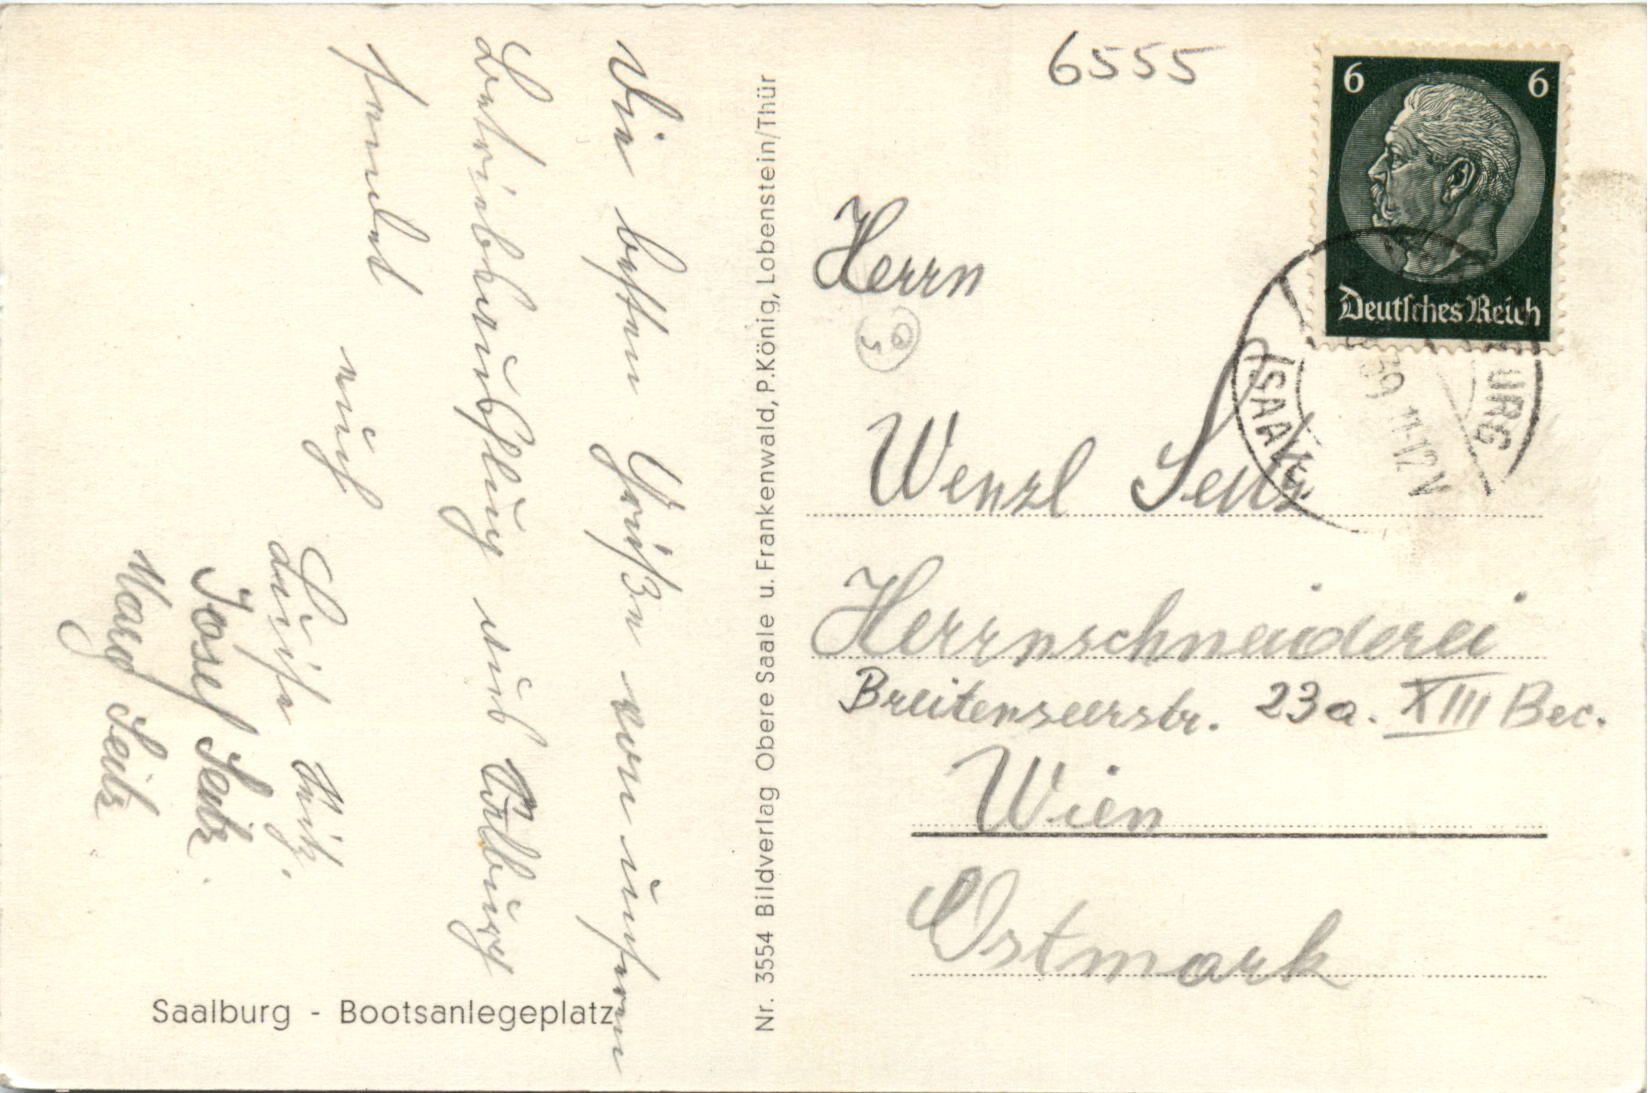 6555
6 6
Deutsches Reich
SAALBURG (SAALE)
39 11-12 V
Die besten Grüße von unserem
Betriebsausflug aus Saalburg
sendet
auch
Luise
Josef Seitz.
Marg Seitz
Saalburg - Bootsanlegeplatz
Nr. 3554 Bildverlag Obere Saale u. Frankenwald, P. König, Lobenstein/Thür
Herrn
Wenzl Seitz
Herrnschneiderei
Breitenseerstr. 23a. XIII Bec.
Wien
Ostmark